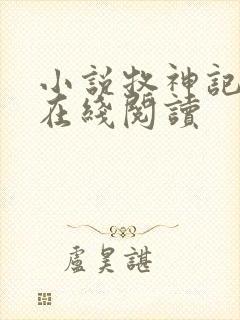 小說牧神記
在綫閱讀
盧昊諶